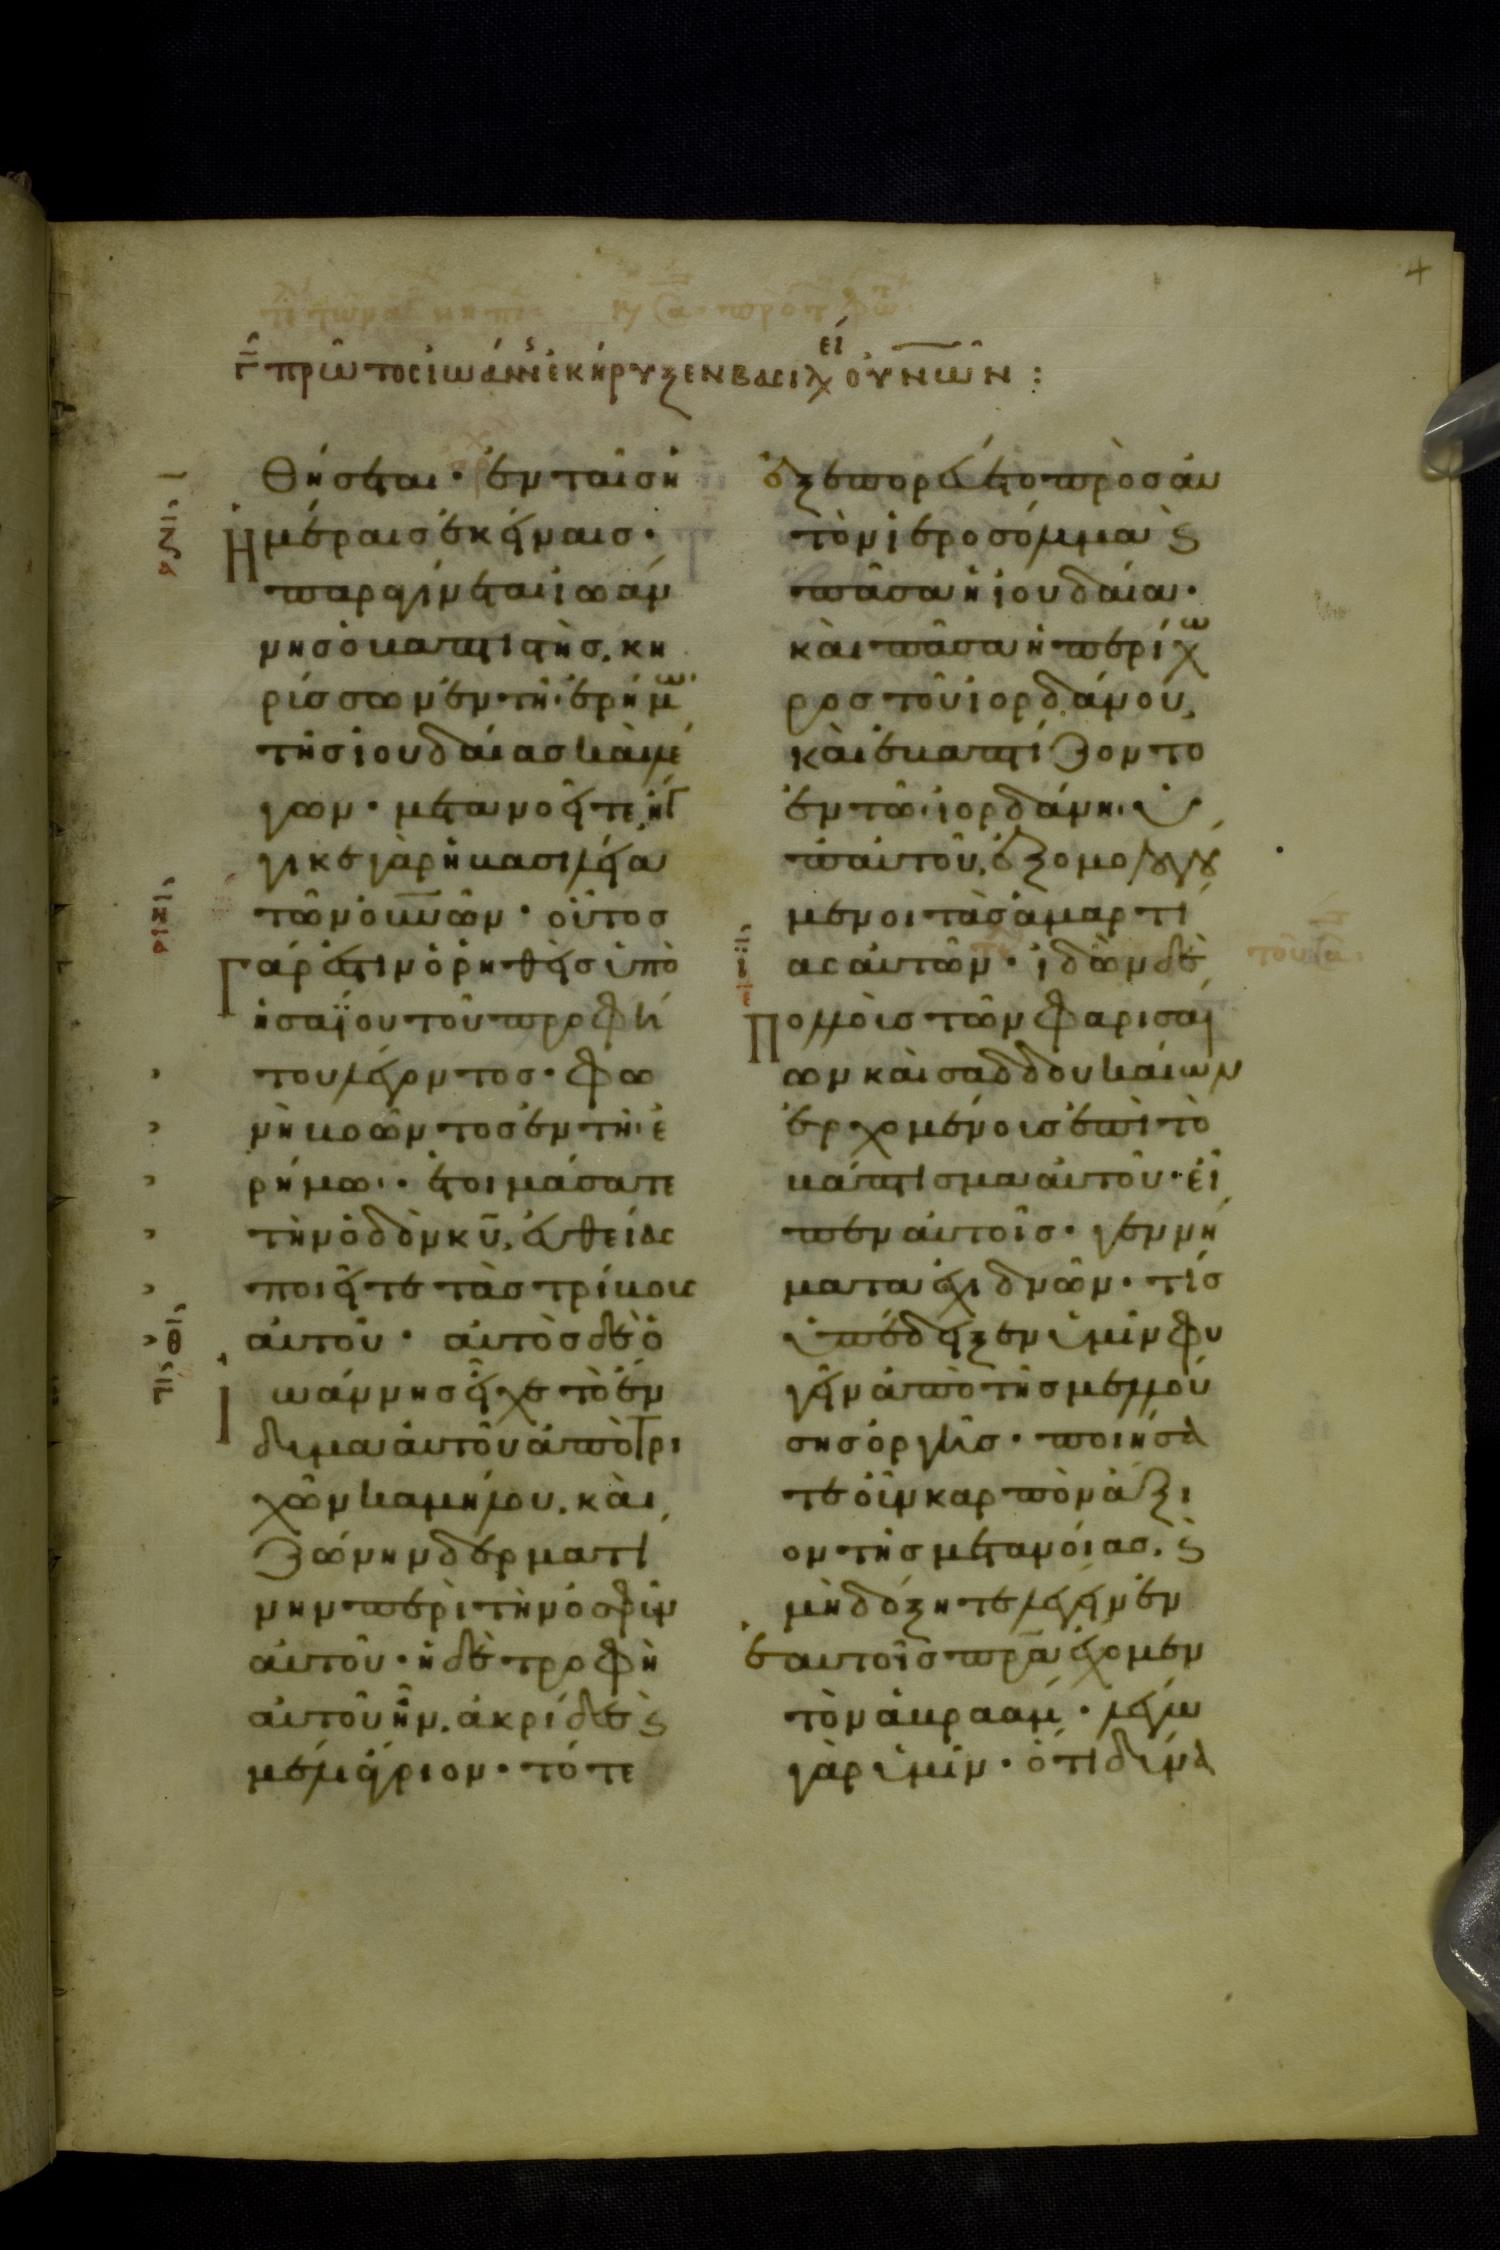 γ̄ πρῶτος ἰωάννης ἐκήρυξεν βασιλχείουν̅ῶν :
θήσεται · ἐν ταῖς ἡ
μέραις ἐκείναις ·
παραγίνεται ἰωάν
νης ὁ βαπτιστὴς, κη
ρίσσων ἐν τῆ ἐρήμω
τῆς ἰουδαίας καὶ λέ
γων · μετανοεῖτε ἤγ
γικε γὰρ ἡ βασιλεία
τῶν οὐν̅ῶν · οὗτος
γάρ ἐστιν ὁ ῥηθεὶς ὑπὸ
ἠσαΐου τοῦ προφή
του λέγοντος · φω
νὴ βοῶντος ἐν τῆ ἐ
ρήμω · ἑτοιμάσατε
τὴν ὁδὸν κ̅υ, εὐθείας
ποιεῖτε τὰς τρίβους
αὐτοῦ · αὐτὸς δὲ ὁ
ἰωάννης εἶχε τὸ ἔν
δυμα αὐτοῦ ἀπὸ τρι
χῶν καμήλου, καὶ
ζώνην δερματί
νην περὶ τὴν ὀσφὺν
αὐτοῦ · ἡ δὲ τροφὴ
αὐτοῦ ἦν, ἀκρίδες ϗ
μέλι ἄγριον · τότε
ἐξεπορεύετο πρὸς αὐ
τὸν ἱεροσόλυμα ϗ
πᾶσα ἡ ἰουδαία ·
καὶ πᾶσα ἡ περίχω
ρος τοῦ ἰορδάνου,
καὶ ἐβαπτίζοντο
ἐν τῶ ἰορδάνη ὑ
π' αὐτοῦ, ἐξομολογού
μενοι τὰς ἁμαρτί
ας αὐτῶν · ἰδὼν δὲ
πολλοὺς τῶν φαρισαί
ων καὶ σαδδουκαίων
ἐρχομένους ἐπὶ τὸ
βάπτισμα αὐτοῦ · εἶ
πεν αὐτοῖς · γεννή
ματα ἐχιδνῶν · τίς
ὑπέδειξεν ὑμῖν φυ
γεῖν ἀπὸ τῆς μελλού
σης ὀργῆς · ποιήσα
τε οὖν καρπὸν ἄξι
ον τῆς μετανοίας, ϗ
μὴ δόξητε λέγειν ἐν
ἑαυτοῖς πρ̅α ἔχομεν
τὸν ἀβραάμ · λέγω
γὰρ ὑμῖν · ὅτι δύνα